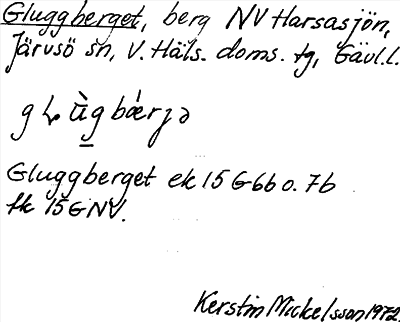 Gluggberget, berg NV Harsasjön,
Järvsö sn, V. Häls. doms. tg, Gävl.l.
Gluggberget ek 15 G 6b o. 7b
fk 15 G NV.
Kerstin Mickelsson 1972.